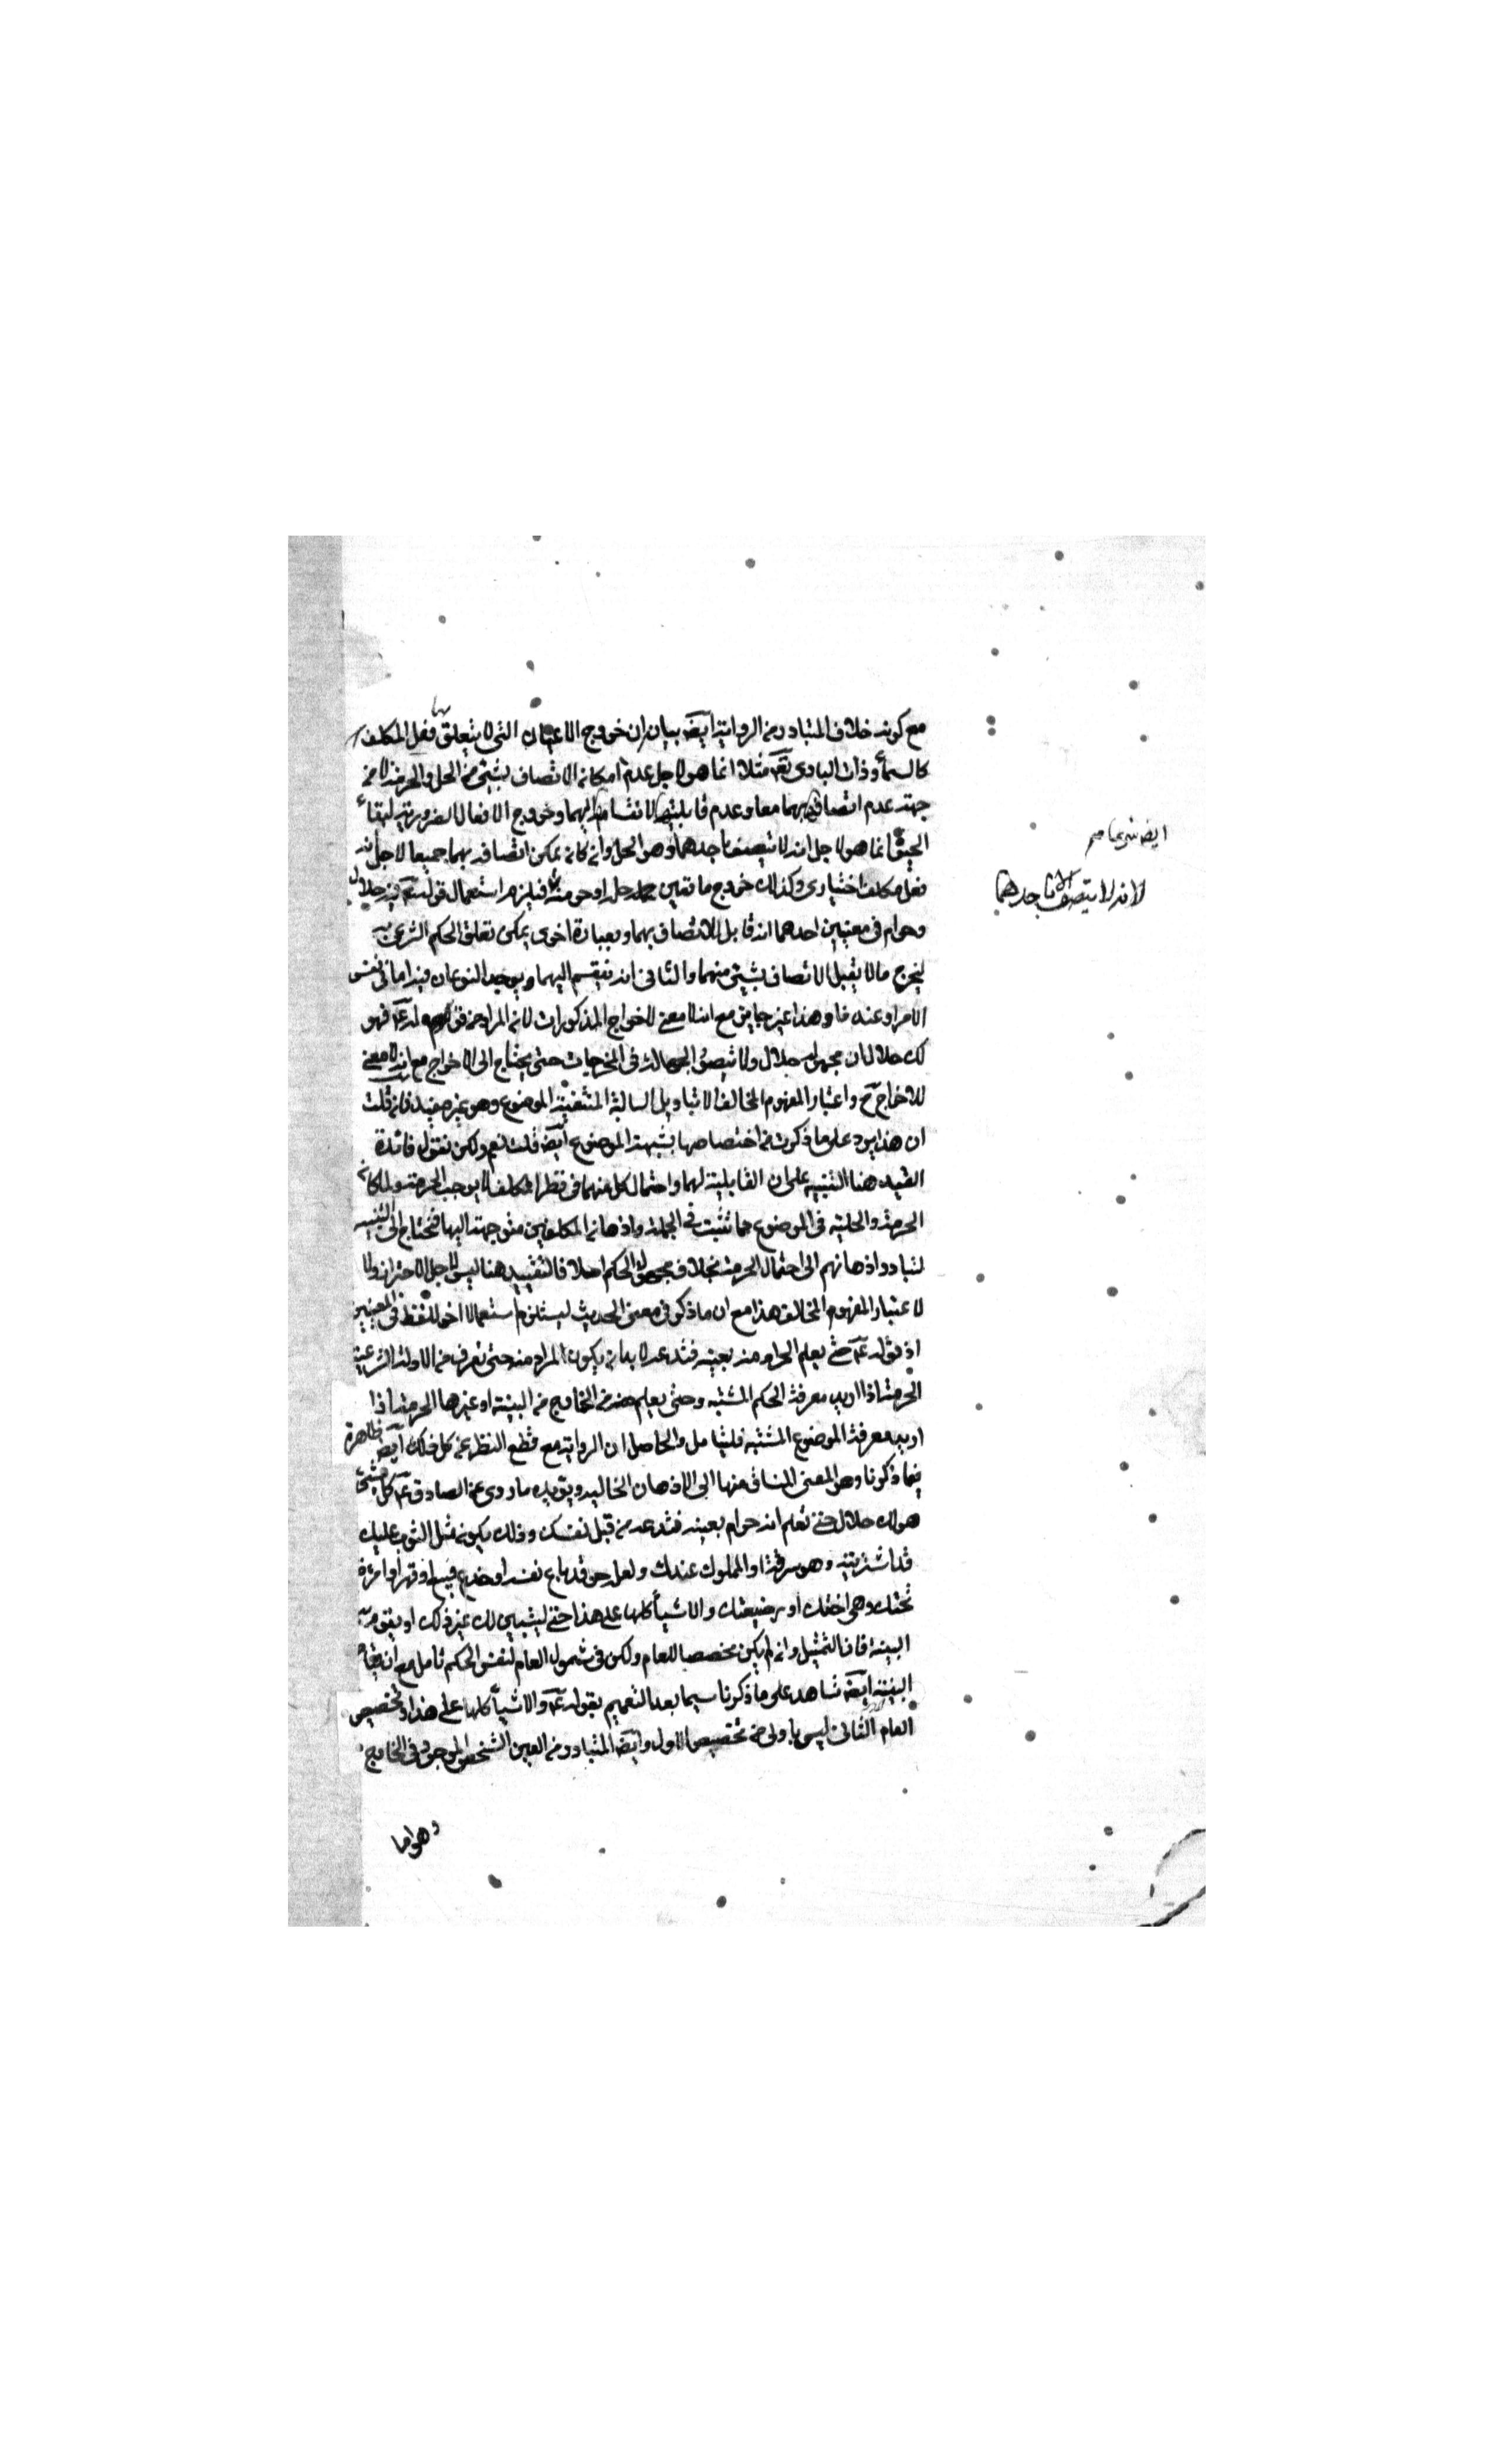 مع كونه خلاف المتبادر من الرواية ايضه بيان ان خروج الاعيان التى لا يتعلق بها فعل المكلف
كالسماء وذات البارى تعه مثلا انما هو لاجل عدم امكان الاتصاف بشيئ من الحل والحرمة لا من
جهة عدم اتصافها بهما معا وعدم قابليتها لانقسامها اليهما وخروج الافعال الضرورية لبقاء
الحيوة انما هو لاجل انه لا يتصف باحدهما وهو الحل وان كان يمكن اتصافه بهما جميعا لاجل انه
فعل مكلف اختيارى وكذلك خروج ما تعين حل او حرمته فيلزم استعمال قوله عم فيه حلال
وحرام فى معنيين احدهما انه قابل للاتصاف بهما وبعبارة اخرى يمكن تعلق الحكم الشرعى به
ليخرج ما لا يقبل الاتصاف بشيئ منهما والثانى انه ينقسم اليهما ويوجد النوعان فيه اما فى نفس
الامر او عندنا وهذا غير جايز مع انه لا معنى لاخراج المذكورات لان المراد من قوله عم فهو
لك حلال ان مجهوله حلال ولا يتصور الجهالة فى المخرجات حتى يحتاج الى الاخراج مع انه لا معنى
للاخراج ح واعتبار المفهوم المخالف الا بتاويل السالبة المنتفية الموضوع وهو غير مفيد فان قلت
ان هذا يرد على ما ذكرت من اختصاصها بشبهة الموضوع ايضه قلت نعم ولكن نقول فائدة
القيد هنا التنبيه على ان القابلية لهما واحتمال كل منهما فى نظر المكلف لا يوجب الحرمة ولما كان
الحرمة والحلية فى الموضوع مما تثبت فى الجملة واذهان المكلفين متوجهة اليها فتحتاج الى التنبيه
لتبادر اذهانهم الى احتمال الحرمة بخلاف مجهول الحكم اصلا فالتقييد هنا ليس لاجل الاحتراز ولا
لاعتبار المفهوم المخالف هذا مع ان ما ذكر فى معنى الحديث ليستلزم استعمالا اخر للفظ فى المعنيين
اذ قوله عم حتى يعلم الحرام منه بعينه فتدعه لا بد ان يكون المراد منه حتى تعرف من الاولة الشرعية
الحرمة اذا اريد معرفة الحكم المشتبه وحتى يعلم من الخارج من البينة او غيرها الحرمة اذا
اريد معرفة الموضوع المشتبه فليتامل والحاصل ان الرواية مع قطع النظر عن كل ذلك ايضه ظاهرة
فيما ذكرنا وهو المعنى المنساق منها الى الاذهان الخالية ويؤيده ما روى عن الصادق عم كل شيئ
هو لك حلال حتى تعلم انه حرام بعينه فتدعه من قبل نفسك وذلك يكون مثل الثوب عليك
قد اشتريته وهو سرقة او المملوك عندك ولعله حر قد باع نفسه او خدع فبيع او قهر او امرءة
تحتك وهى اختك او رضيعتك والاشياء كلها على هذا حتى ليستبين لك غير ذلك او يقوم به
البينة فان التمثيل وان لم يكن مخصصا للعام ولكن فى شمول العام لنفس الحكم تامل مع ان قيام
البينة ايضه شاهد على ما ذكرنا سيما بعد التعميم بقوله عم والاشياء كلها على هذا وتخصيص
العام الثانى ليس باولى من تخصيص الاول وايضه المتبادر من العين الشخص الموجود فى الخارج
لانه لا يتصف الا باحدهما
وهو اما